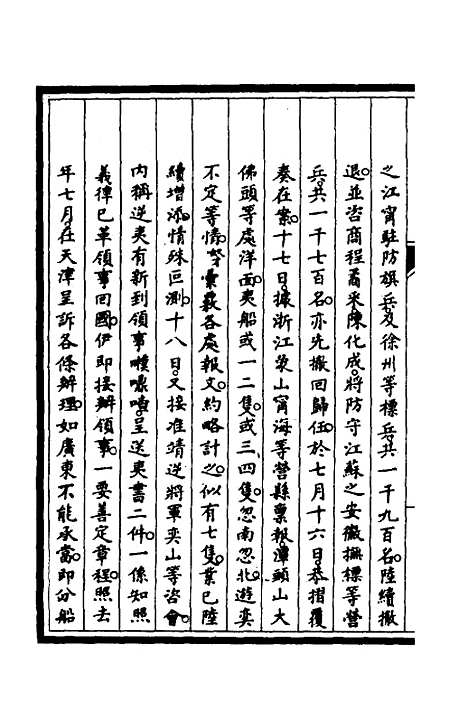 之江甯駐防旗兵及徐州等標兵共一千九百名陸續撤
退並咨商程矞采陳化成將防守江蘇之安徽撫標等營
兵共一千七百名亦先撤回歸伍於七月十六日恭摺覆
奏在案十七日據浙江象山甯海等營縣稟報潭頭山大
佛頭等處洋面夷船或一二隻或三四隻忽南忽北遊奕
不定等情奴才彙覈各處報文約略計之似有七隻業已陸
續增添情殊叵測十八日又接准靖逆將軍奕山等咨會
內稱逆夷有新到領事㗎嚎喳呈送夷書二件一係知照
義律已革領事回國伊即接辦領事一要善定章程照去
年七月在天津呈訴各條辦理如廣東不能承當即分船